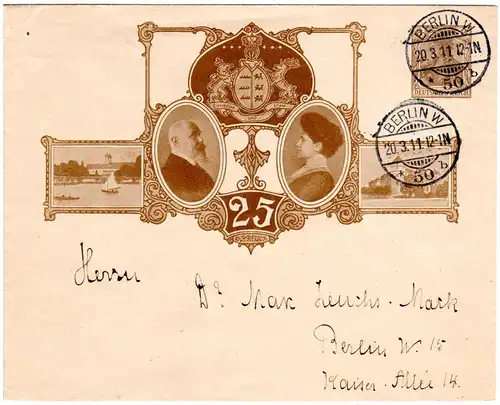 BERLIN W
20.3.11.12-1N
* 50 b
DEUTSCHES REICH
BERLIN W
20.3.11.12-1N
* 50 b
25
Herrn
Dr. Max Leuchs-Mark
Berlin W. 15
Kaiser-Allee 14.